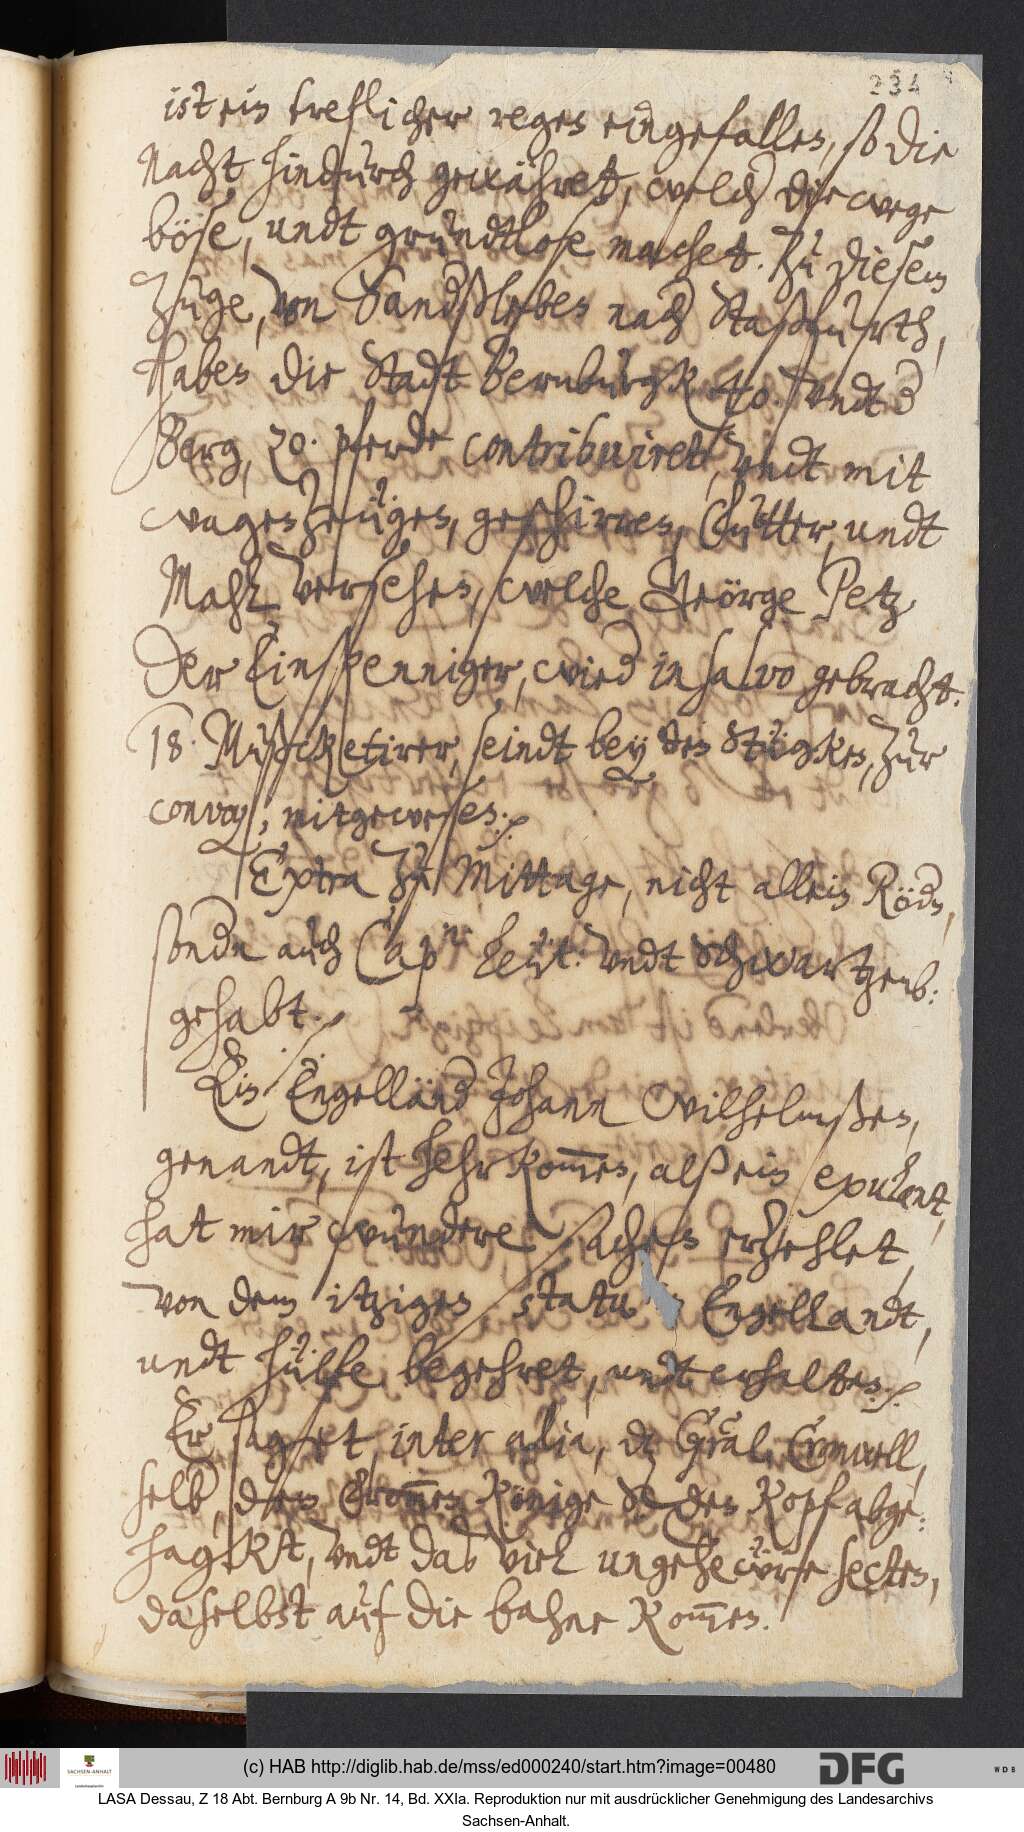 234
ist ein treflicher regen eingefallen, so die
Nacht hindurch gewähret, welch die wege
böse, undt grundtlose machet. Zu diesem
Zuge, von Sandßleben nach Staßfurth,
haben die Stadt Bernburgk 40. undt d
Berg, 20. pferde contribuiret, undt mit
wagenzeüge, geschirren, futter, undt
Mahl versehen, welche, George Petz,
der Einspenniger, wied in salvo gebracht.
18. Mußcketirer, seindt bey den Stügken, zur
convoy, mitgewesen.
Extra zu Mittage, nicht allein Rödn,
sondn auch Capn Leüt: undt Schwartzenb:
gehabt.
Ein Engelländ Johann Wilhelmßen,
genandt, ist hehrkommen, alß ein exulant,
hat mir wundere sachen erzehlet,
von dem itzigen statu Engellandt,
undt hülfe begehret, undt erhalten.
Er saget, inter alia, dz Gral, Cromwell,
selb, dem frommen Könige den Kopf abge:
hagkt, undt daß viel ungehewre secten,
daselbst auf die bahne kommen.
(c) HAB http://diglib.hab.de/mss/ed000240/start.htm?image=00480
SACHSEN-ANHALT
DFG
WDB
LASA Dessau, Z 18 Abt. Bernburg A 9b Nr. 14, Bd. XXIa. Reproduktion nur mit ausdrücklicher Genehmigung des Landesarchivs
Sachsen-Anhalt.